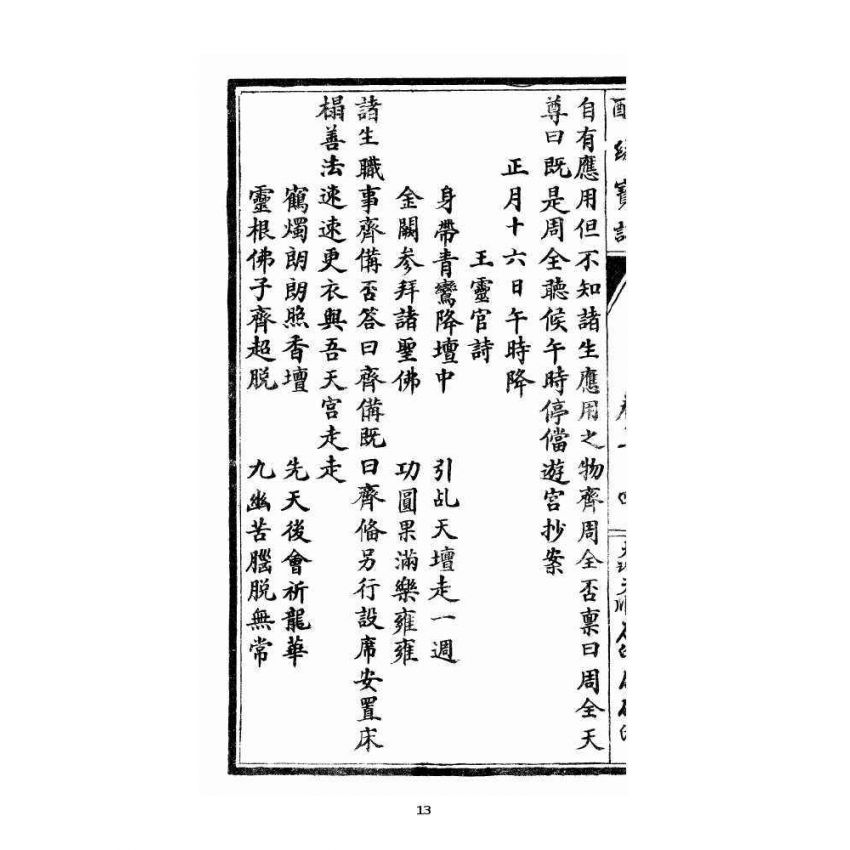 自有應用但不知諸生應用之物齊周全否禀曰周全天
尊曰既是周全聽候午時停儅遊宫抄案
正月十六日午時降
王靈官詩
身帶青鸞降壇中 引乩天壇走一週
金闕参拜諸聖佛 功圓果滿樂雍雍
諸生職事齊備否答曰齊備既曰齊俻另行設席安置床
榻善法速速更衣與吾天宫走走
鶴燭朗朗照香壇 先天後會祈龍華
靈根佛子齊超脱 九幽苦腦脱無常
13